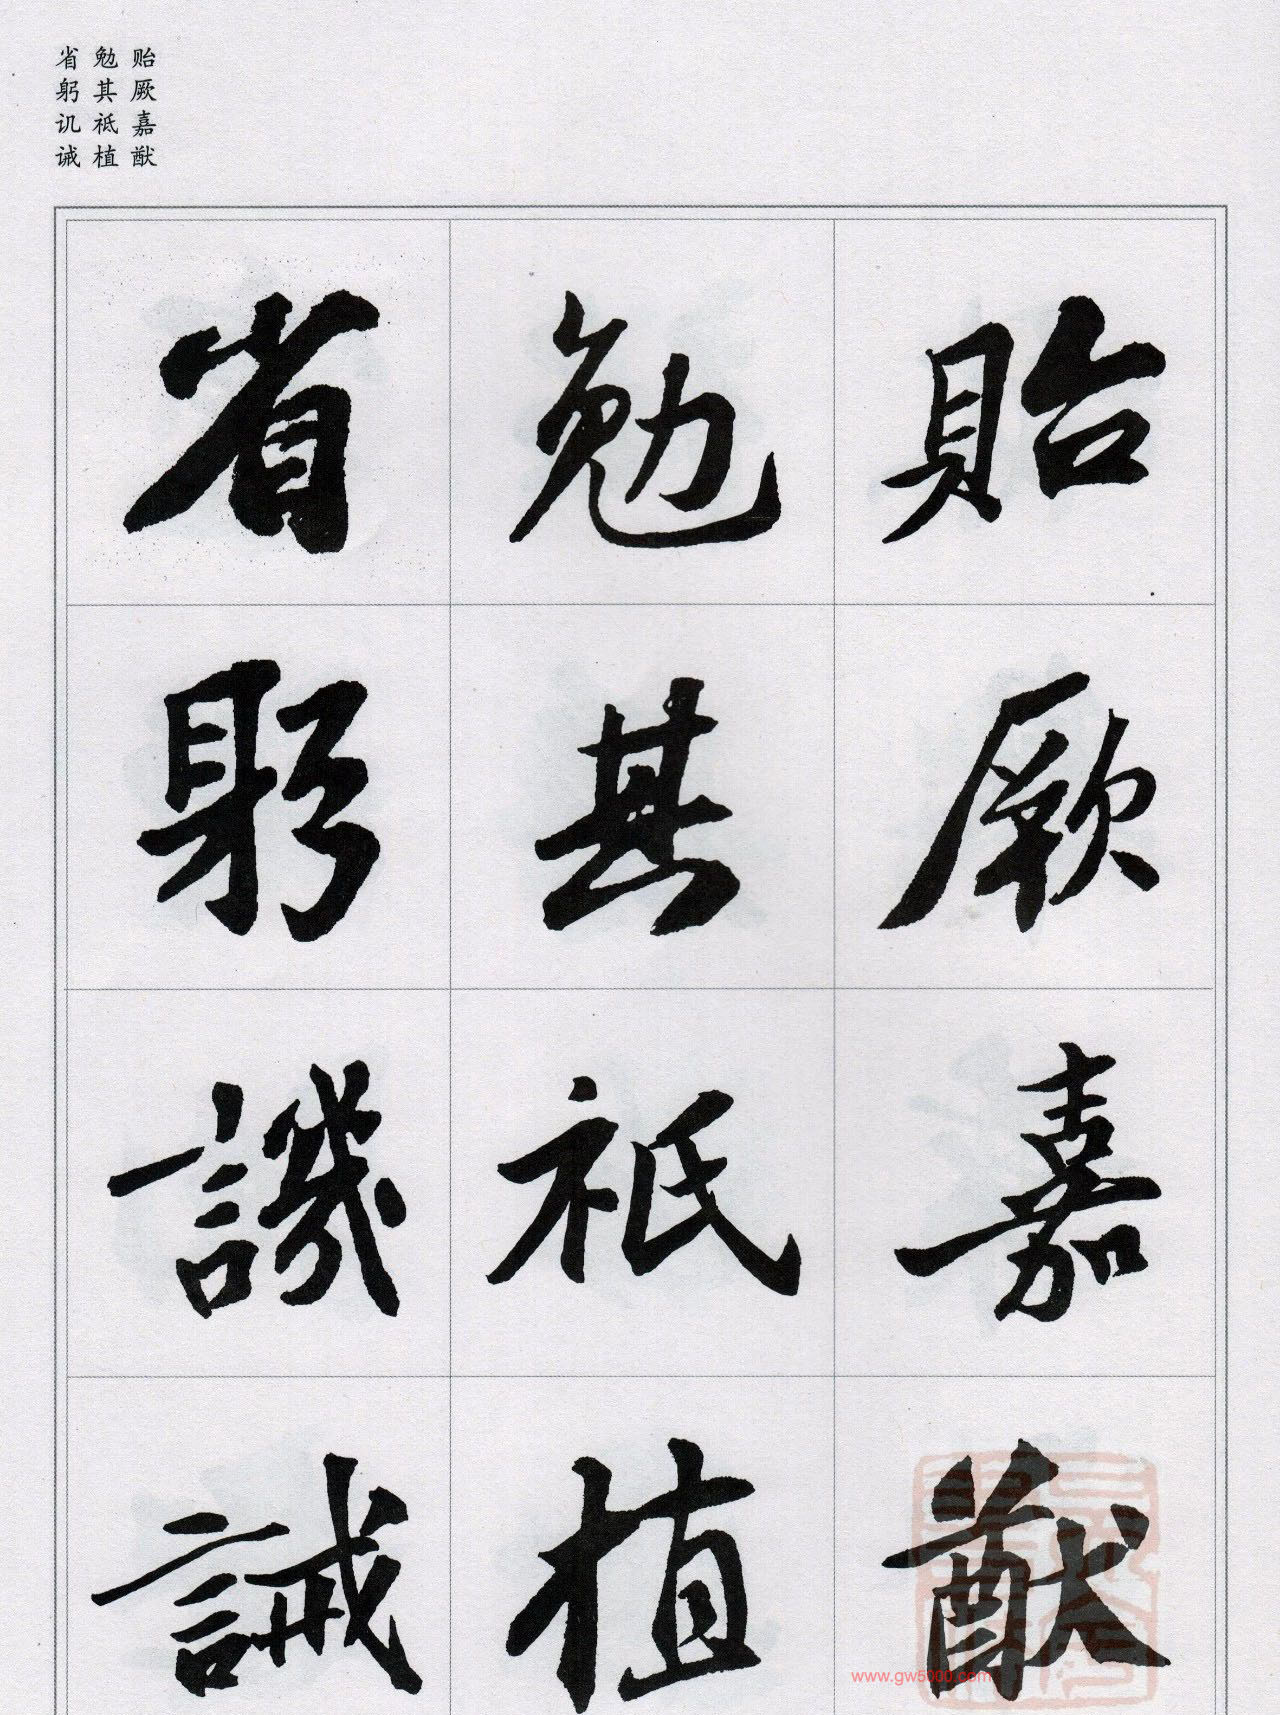 贻厥嘉猷
勉其祗植
省躬讥诫
貽厥嘉猷
勉其祗植
省躬譏誡
www.gw5000.com